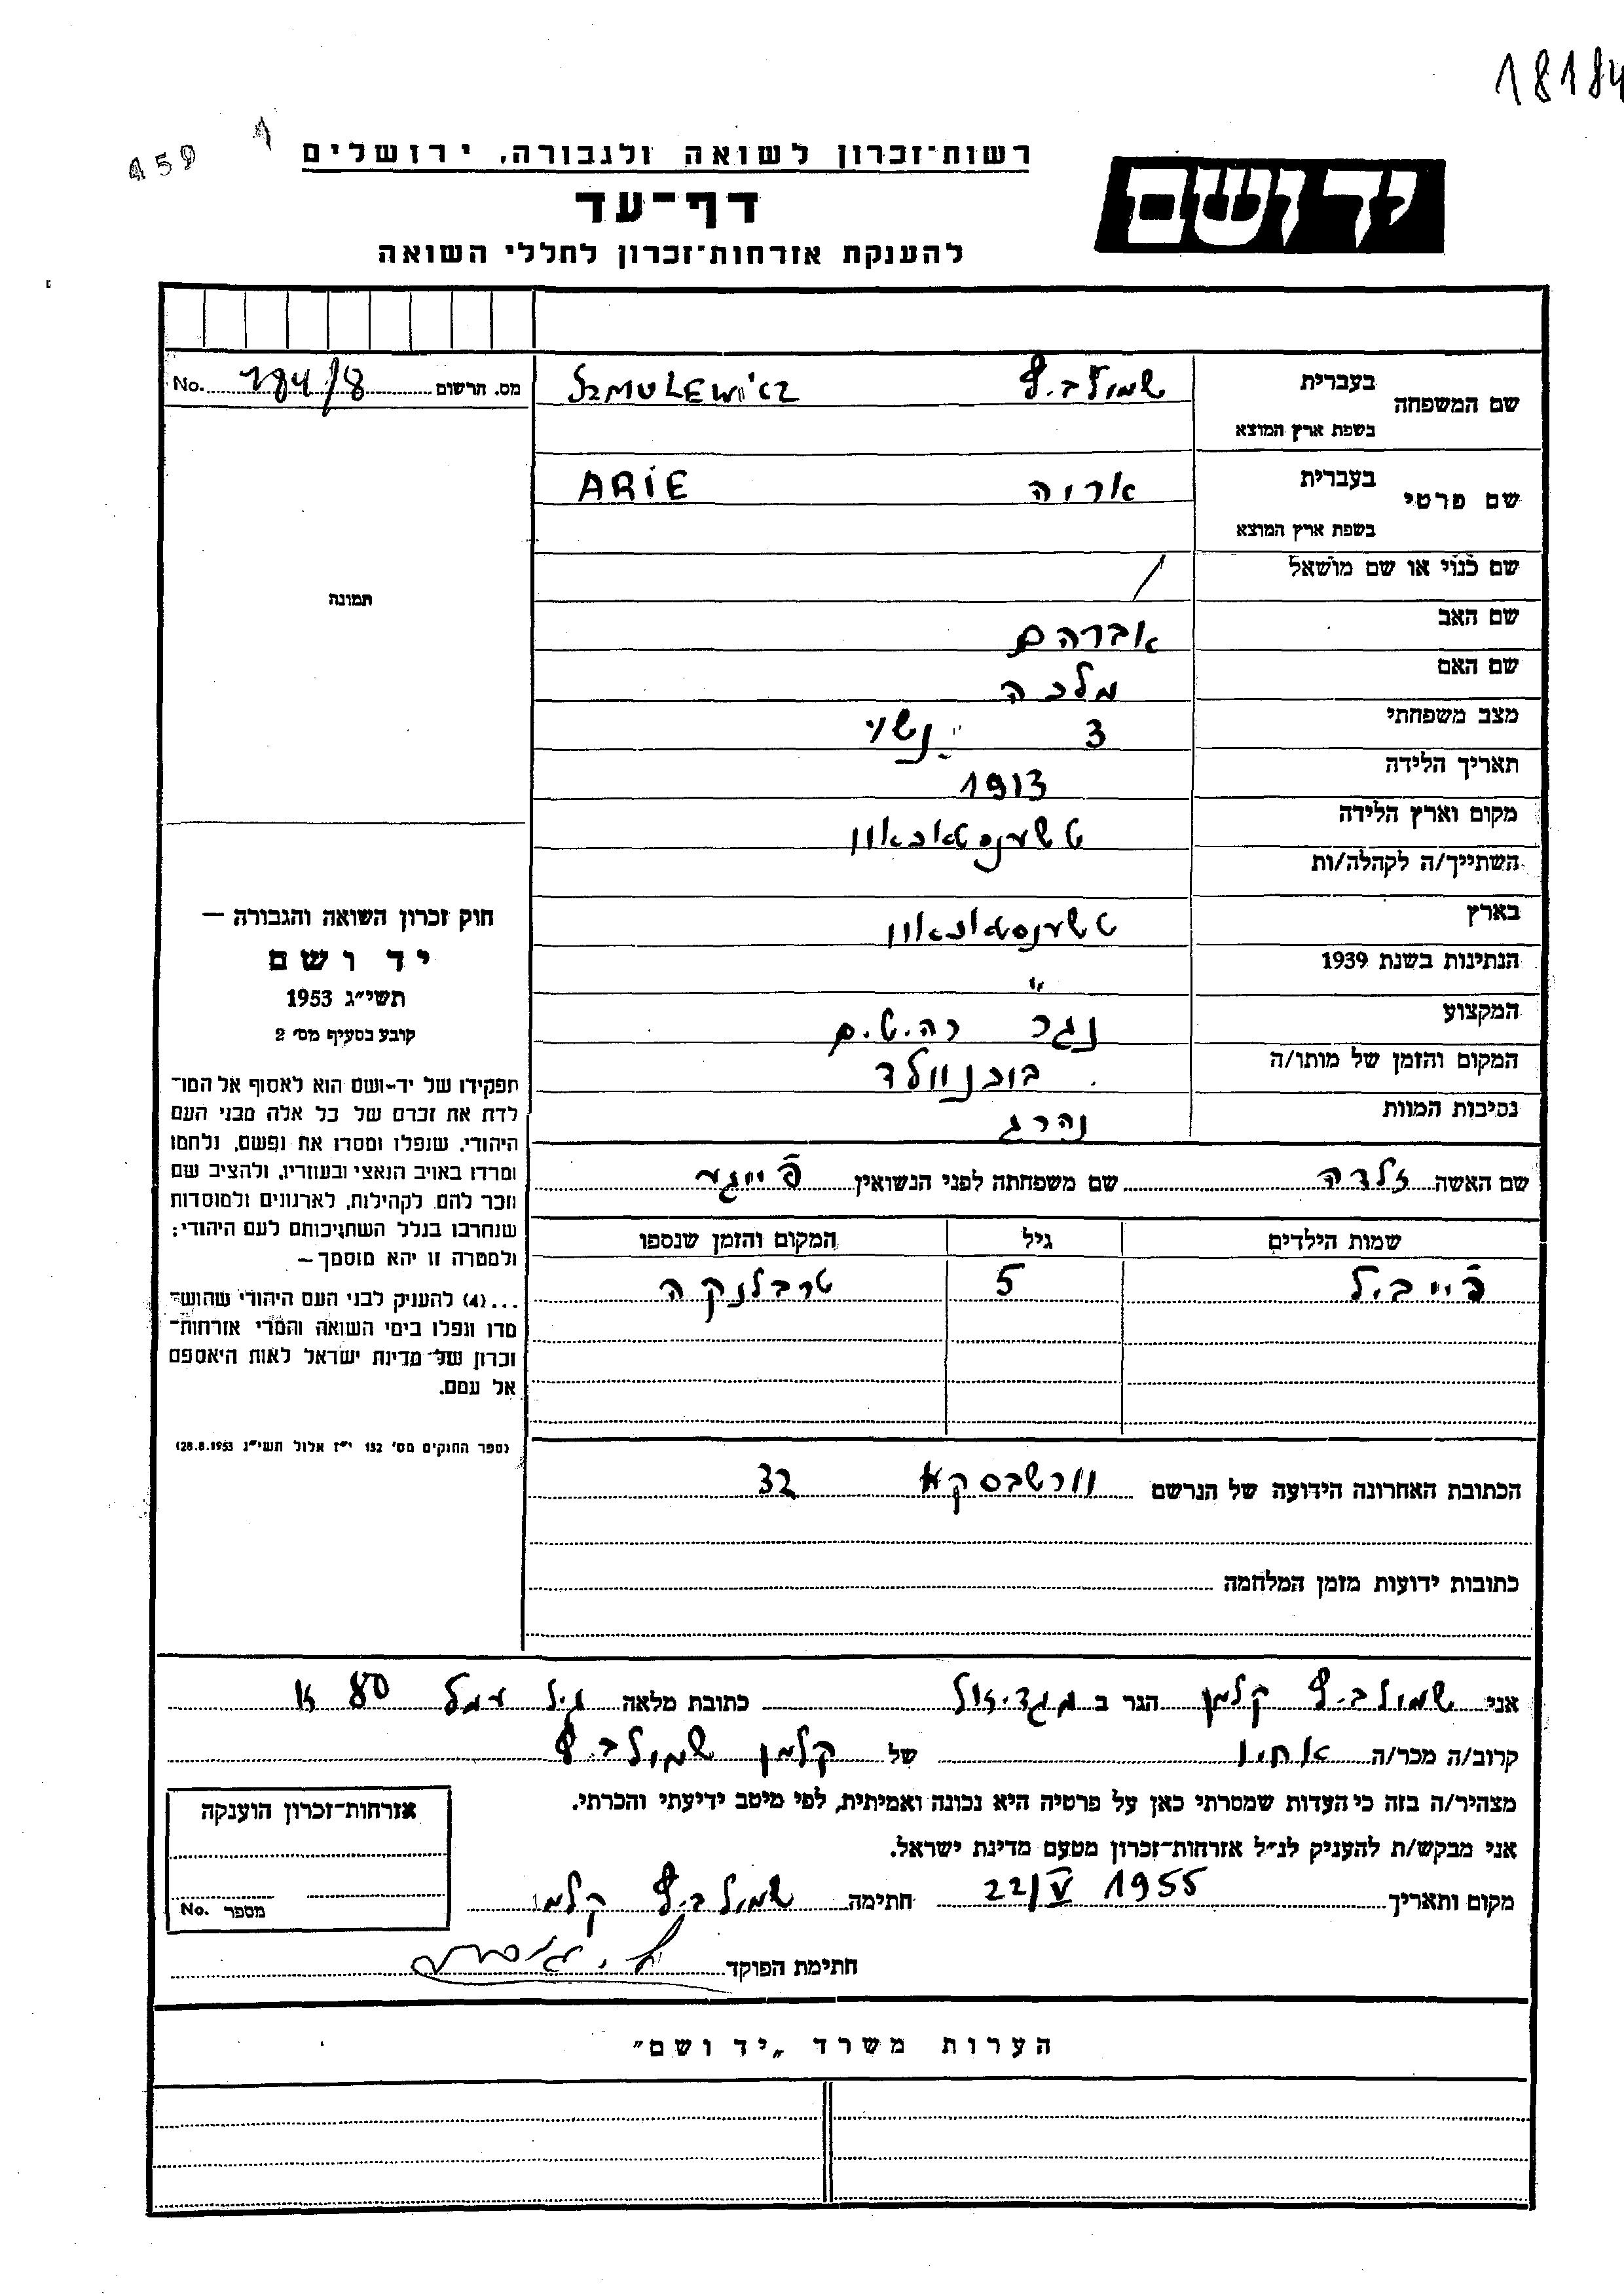 18184
459
רשות־זכרון לשואה ולגבורה, ירושלים
דף־עד
להענקת אזרחות־זכרון לחללי השואה
יד ושם
שם המשפחה
בעברית שמולביץ SZMULEWiCZ
בשפת ארץ המוצא
מס. הרשום 184/8 No.
שם פרטי
בעברית אריה ARiE
בשפת ארץ המוצא
שם כנוי או שם מושאל /
שם האב אברהם
שם האם מלכה
מצב משפחתי 3 נשוי
תאריך הלידה 1913
מקום וארץ הלידה טשענסטאכאוו
השתייך/ה לקהלה/ות
בארץ טשענסטאכאוו
הנתינות בשנת 1939 "
המקצוע נגר רה.ט.ם
המקום והזמן של מותו/ה בוכנוולד
נסיבות המוות נהרג
תמונה
חוק זכרון השואה והגבורה —
יד ושם
תשי״ג 1953
קובע בסעיף מס׳ 2
תפקידו של יד־ושם הוא לאסוף אל המו־
לדת את זכרם של כל אלה מבני העם
היהודי, שנפלו ומסרו את נפשם, נלחמו
ומרדו באויב הנאצי ובעוזריו, ולהציב שם
וזכר להם לקהילות, לארגונים ולמוסדות
שנחרבו בגלל השתיכותם לעם היהודי;
ולמטרה זו יהא מוסמך —
...(4) להעניק לבני העם היהודי שהוש־
מדו ונפלו בימי השואה והמרי אזרחות־
זכרון של מדינת ישראל לאות היאספם
אל עמם.
(ספר החוקים מס׳ 132 י״ז אלול תשי״ג 28.8.1953)
שם האשה זלדה שם משפחתה לפני הנשואין פייגע
שמות הילדים גיל המקום והזמן שנספו
פייביל 5 טרבלנקה
הכתובת האחרונה הידועה של הנרשם וורשבסקא 32
כתובות ידועות מזמן המלחמה
אני שמולביץ קלמן הגר ב מגדיאל כתובת מלאה גיל עמל 80 א
קרוב/ה מכר/ה אחיו של קלמן שמולביץ
מצהיר/ה בזה כי העדות שמסרתי כאן על פרטיה היא נכונה ואמיתית, לפי מיטב ידיעתי והכרתי.
אני מבקש/ת להעניק לנ״ל אזרחות־זכרון מטעם מדינת ישראל.
מקום ותאריך 22/V 1955 חתימה שמולביץ קלמן
חתימת הפוקד
אזרחות־זכרון הוענקה
מספר No.
הערות משרד „יד ושם״